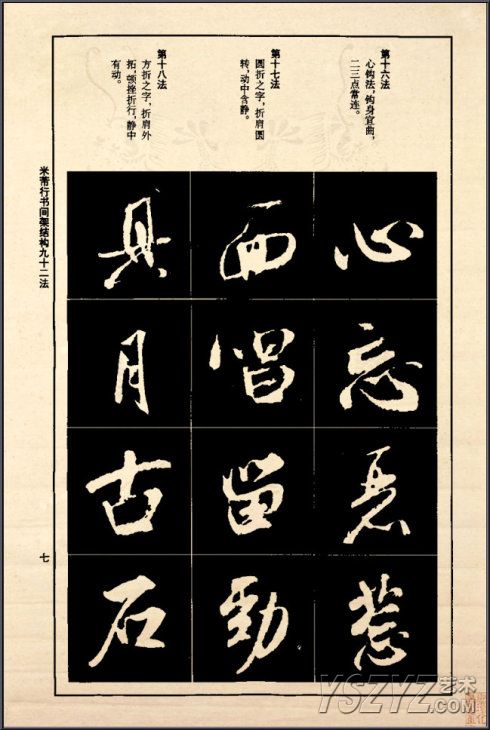 第十六法
心钩法，钩身宜曲，
二三点常连。
第十七法
圆折之字，折肩圆
转，动中含静。
第十八法
方折之字，折肩外
拓，顿挫折行，静中
有动。
心忘
而唱留劲
具月古石
米芾行书间架结构九十二法
七
YSZYZ艺术.COM